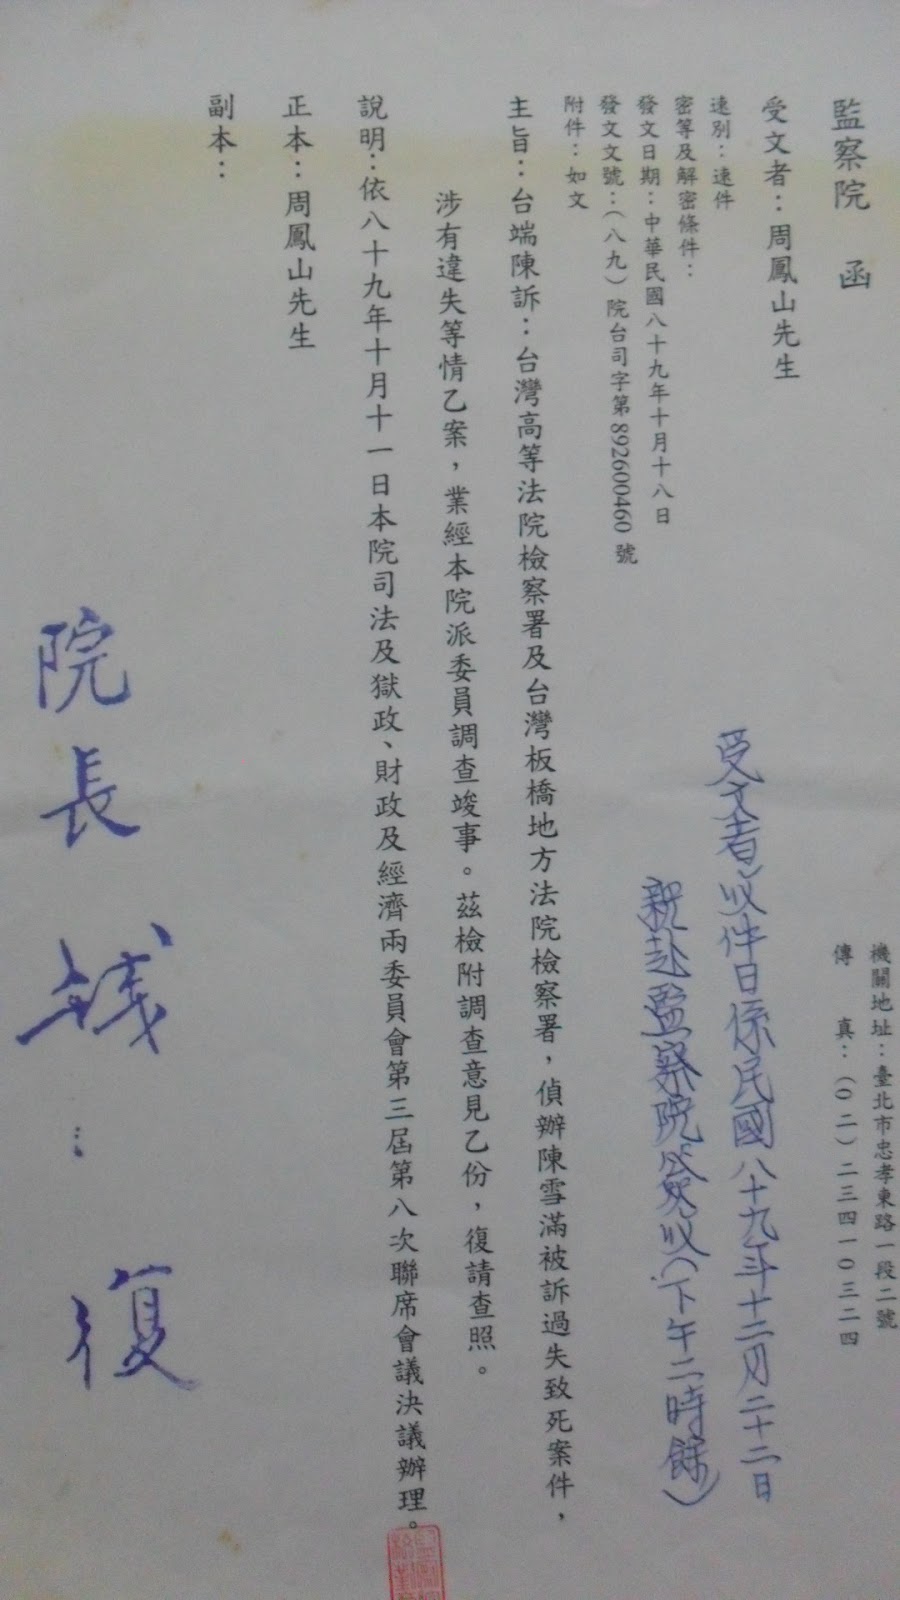 機關地址：臺北市忠孝東路一段二號
傳　真：（０二）二三四一０三二四
監察院　函
受文者：周鳳山先生
速別：速件
密等及解密條件：
發文日期：中華民國八十九年十月十八日
發文文號：（八九）院台司字第892600460號
附件：如文
受文者）收件日係民國八十九年十二月二十二日
親赴監察院簽收（下午二時餘）
主旨：台端陳訴：台灣高等法院檢察署及台灣板橋地方法院檢察署，偵辦陳雪滿被訴過失致死案件，
涉有違失等情乙案，業經本院派委員調查竣事。茲檢附調查意見乙份，復請查照。
說明：依八十九年十月十一日本院司法及獄政、財政及經濟兩委員會第三屆第八次聯席會議決議辦理。
正本：周鳳山先生
副本：
院長錢：復